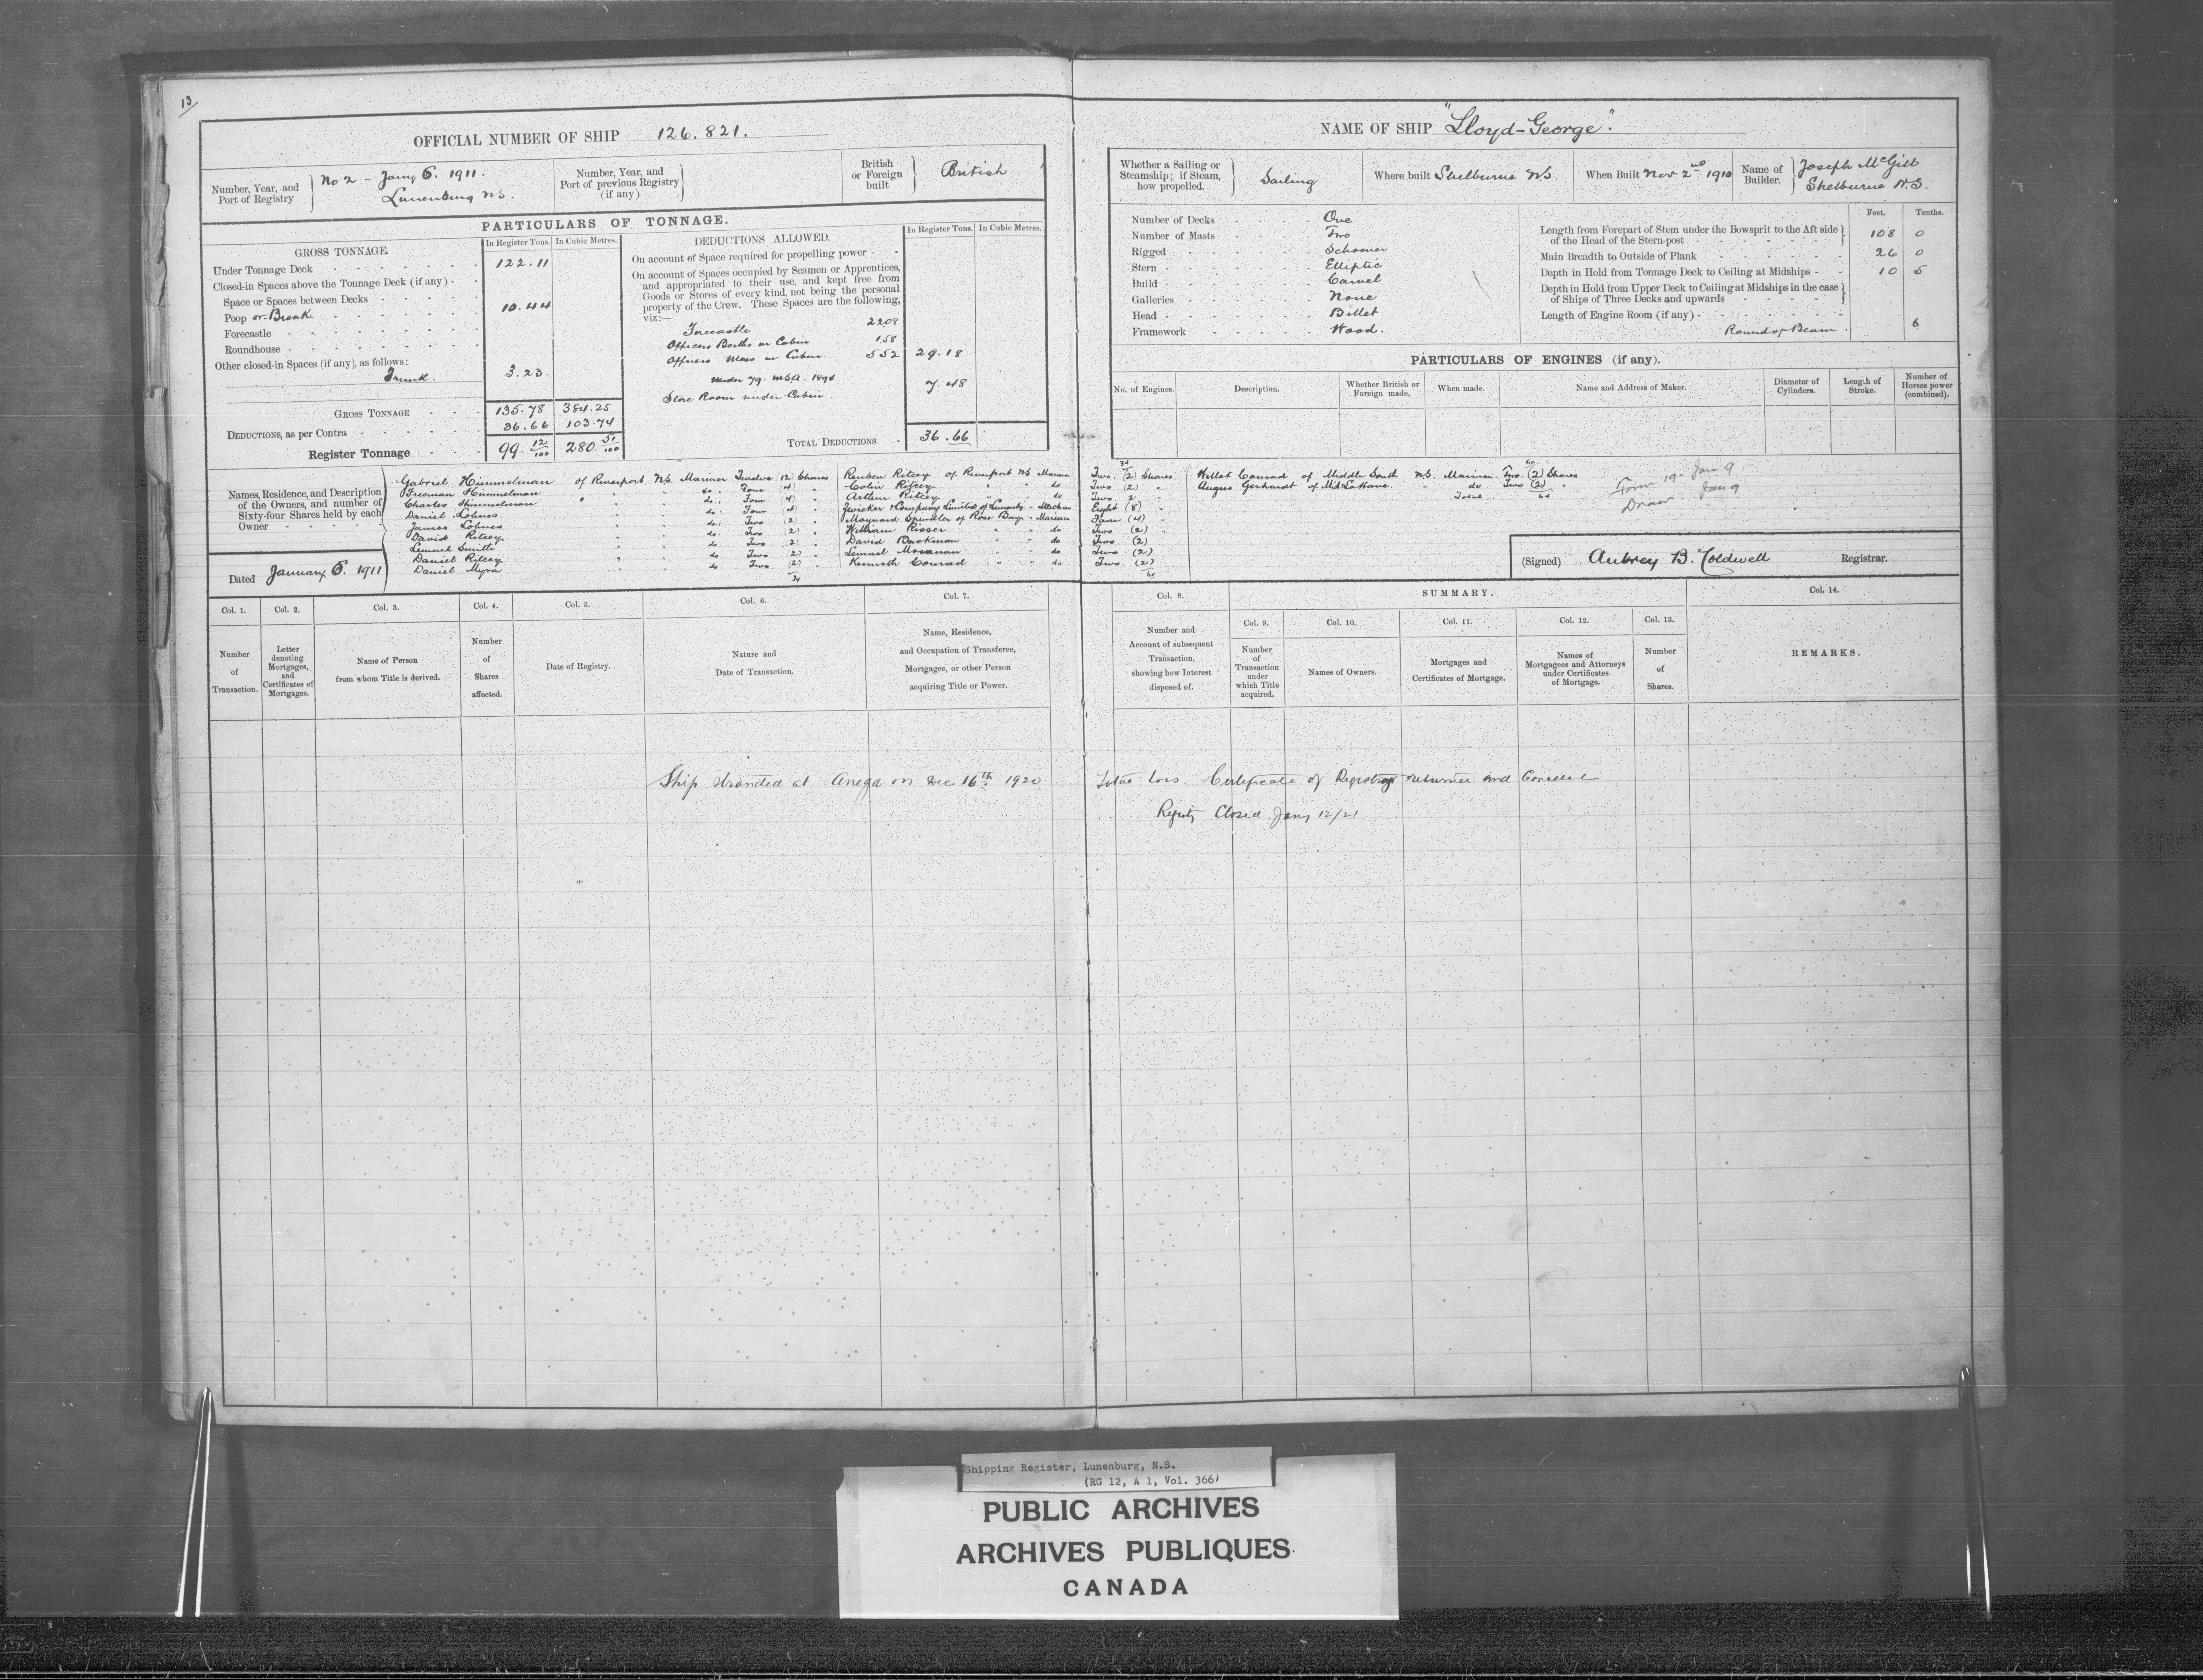 13/
OFFICIAL NUMBER OF SHIP 126.821.
Number, Year, and Port of Registry No 2 - Jany 6. 1911. Lunenburg N.S.
Number, Year, and Port of previous Registry (if any)
British or Foreign built British
PARTICULARS OF TONNAGE.
GROSS TONNAGE. In Register Tons. In Cubic Metres.
Under Tonnage Deck 122.11
Closed-in Spaces above the Tonnage Deck (if any)
Space or Spaces between Decks
Poop or Break 10.44
Forecastle
Roundhouse
Other closed-in Spaces (if any), as follows:
Trunk. 3.23
GROSS TONNAGE 135.78 384.25
DEDUCTIONS, as per Contra 36.66 103.74
Register Tonnage 99 12/100 280 51/100
DEDUCTIONS ALLOWED. In Register Tons. In Cubic Metres.
On account of Space required for propelling power
On account of Spaces occupied by Seamen or Apprentices, and appropriated to their use, and kept free from Goods or Stores of every kind, not being the personal property of the Crew. These Spaces are the following, viz:—
Forecastle 22.08
Officers Berths in Cabin 1.58
Officers Mess in Cabin 5.52 29.18
under 79. MSA. 1894
Store Room under Cabin. 7.48
TOTAL DEDUCTIONS 36.66
Names, Residence, and Description of the Owners, and number of Sixty-four Shares held by each Owner
Gabriel Himmelman of Riverport N.S. Mariner Twelve (12) Shares
Freeman Himmelman do. Four (4)
Charles Himmelman do. Four (4)
Daniel Lohnes do. Four (4)
James Lohnes do. Two (2)
David Ritcey do. Two (2)
Lemuel Smith do. Two (2)
Daniel Ritcey do. Two (2)
Daniel Myra do. Two (2)
34
Reuben Ritcey of Riverport N.S. Mariner
Colin Ritcey do
Arthur Ritcey do
Zwicker & Company Limited of Lunenburg
Maynard Spindler of Rose Bay Mariner
William Risser do
David Backman do
Lemuel Mossman do
Kenneth Conrad do
Dated January 6. 1911
Col. 1. Number of Transaction.
Col. 2. Letter denoting Mortgages, and Certificates of Mortgages.
Col. 3. Name of Person from whom Title is derived.
Col. 4. Number of Shares affected.
Col. 5. Date of Registry.
Col. 6. Nature and Date of Transaction.
Col. 7. Name, Residence, and Occupation of Transferee, Mortgagee, or other Person acquiring Title or Power.
NAME OF SHIP "Lloyd-George".
Whether a Sailing or Steamship; if Steam, how propelled. Sailing
Where built Shelburne N.S.
When Built Nov 2nd 1910
Name of Builder. Joseph McGill Shelburne N.S.
Number of Decks One
Number of Masts Two
Rigged Schooner
Stern Elliptic
Build Carvel
Galleries None
Head Billet
Framework Wood.
Feet. Tenths.
Length from Forepart of Stem under the Bowsprit to the Aft side of the Head of the Stern-post 108 0
Main Breadth to Outside of Plank 26 0
Depth in Hold from Tonnage Deck to Ceiling at Midships 10 5
Depth in Hold from Upper Deck to Ceiling at Midships in the case of Ships of Three Decks and upwards
Length of Engine Room (if any)
Round of Beam. 6
PARTICULARS OF ENGINES (if any).
No. of Engines. Description. Whether British or Foreign made. When made. Name and Address of Maker. Diameter of Cylinders. Length of Stroke. Number of Horses power (combined).
34
Two (2) Shares
Two (2)
Two 2
Eight (8)
Four (4)
Two (2)
Two (2)
Two (2)
Two (2)
60
Willet Conrad of Middle South N.S. Mariner Two (2) Shares
Angus Gerhardt of Mid LaHave do Two (2)
Total 64
Form 19 - Jan 9
Draw. Jan 9
(Signed) Aubrey B. Coldwell Registrar.
Col. 8. Number and Account of subsequent Transaction, showing how Interest disposed of.
SUMMARY.
Col. 9. Number of Transaction under which Title acquired.
Col. 10. Names of Owners.
Col. 11. Mortgages and Certificates of Mortgage.
Col. 12. Names of Mortgagees and Attorneys under Certificates of Mortgage.
Col. 13. Number of Shares.
Col. 14. REMARKS.
Ship stranded at on Dec 16th 1920 Total Loss. Certificate of Registry returned and
Registry Closed Jany 12/21
Shipping Register, Lunenburg, N.S.
(RG 12, A 1, Vol. 366)
PUBLIC ARCHIVES
ARCHIVES PUBLIQUES
CANADA